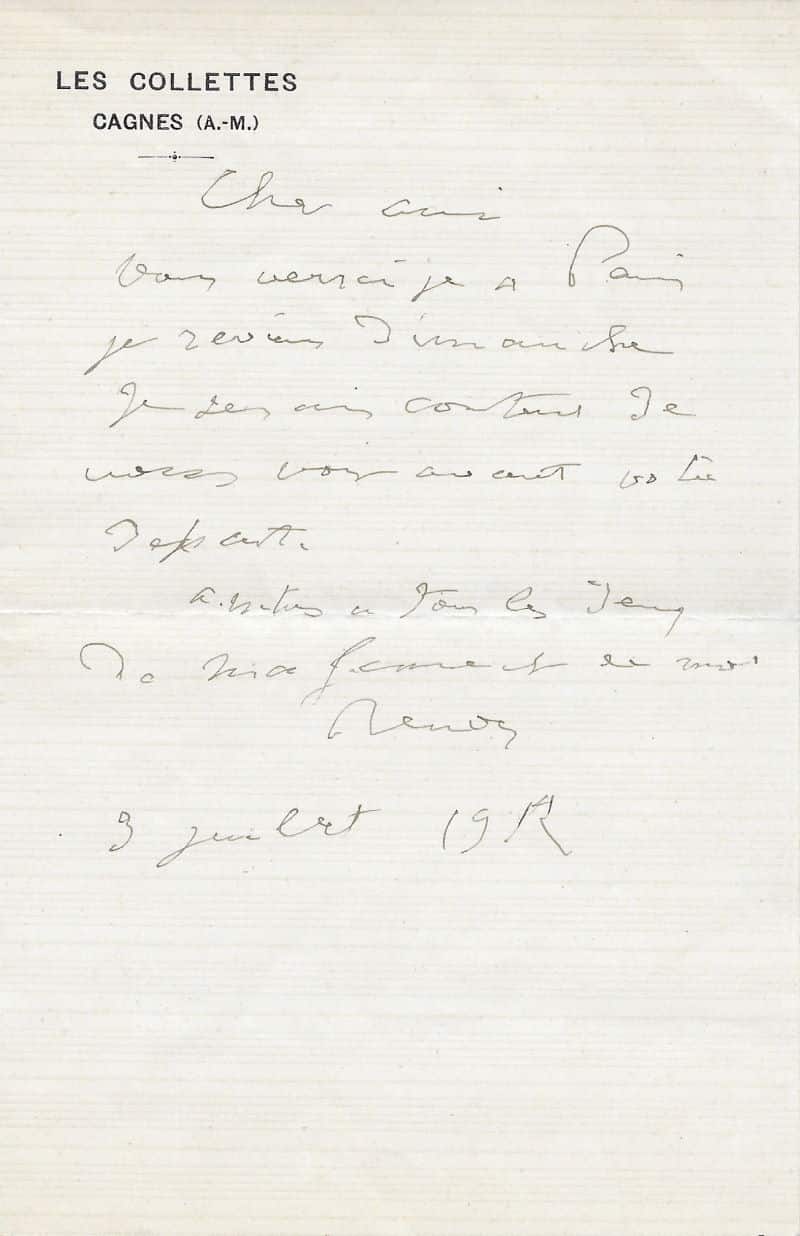 LES COLLETTES
CAGNES (A.-M.)
Cher ami
vous verrai je a Paris
je reviens Dimanche
Je serais content de
vous voir avant votre
depart.
amities a tous les deux
De ma femme et de moi
Renoir
3 juillet 191